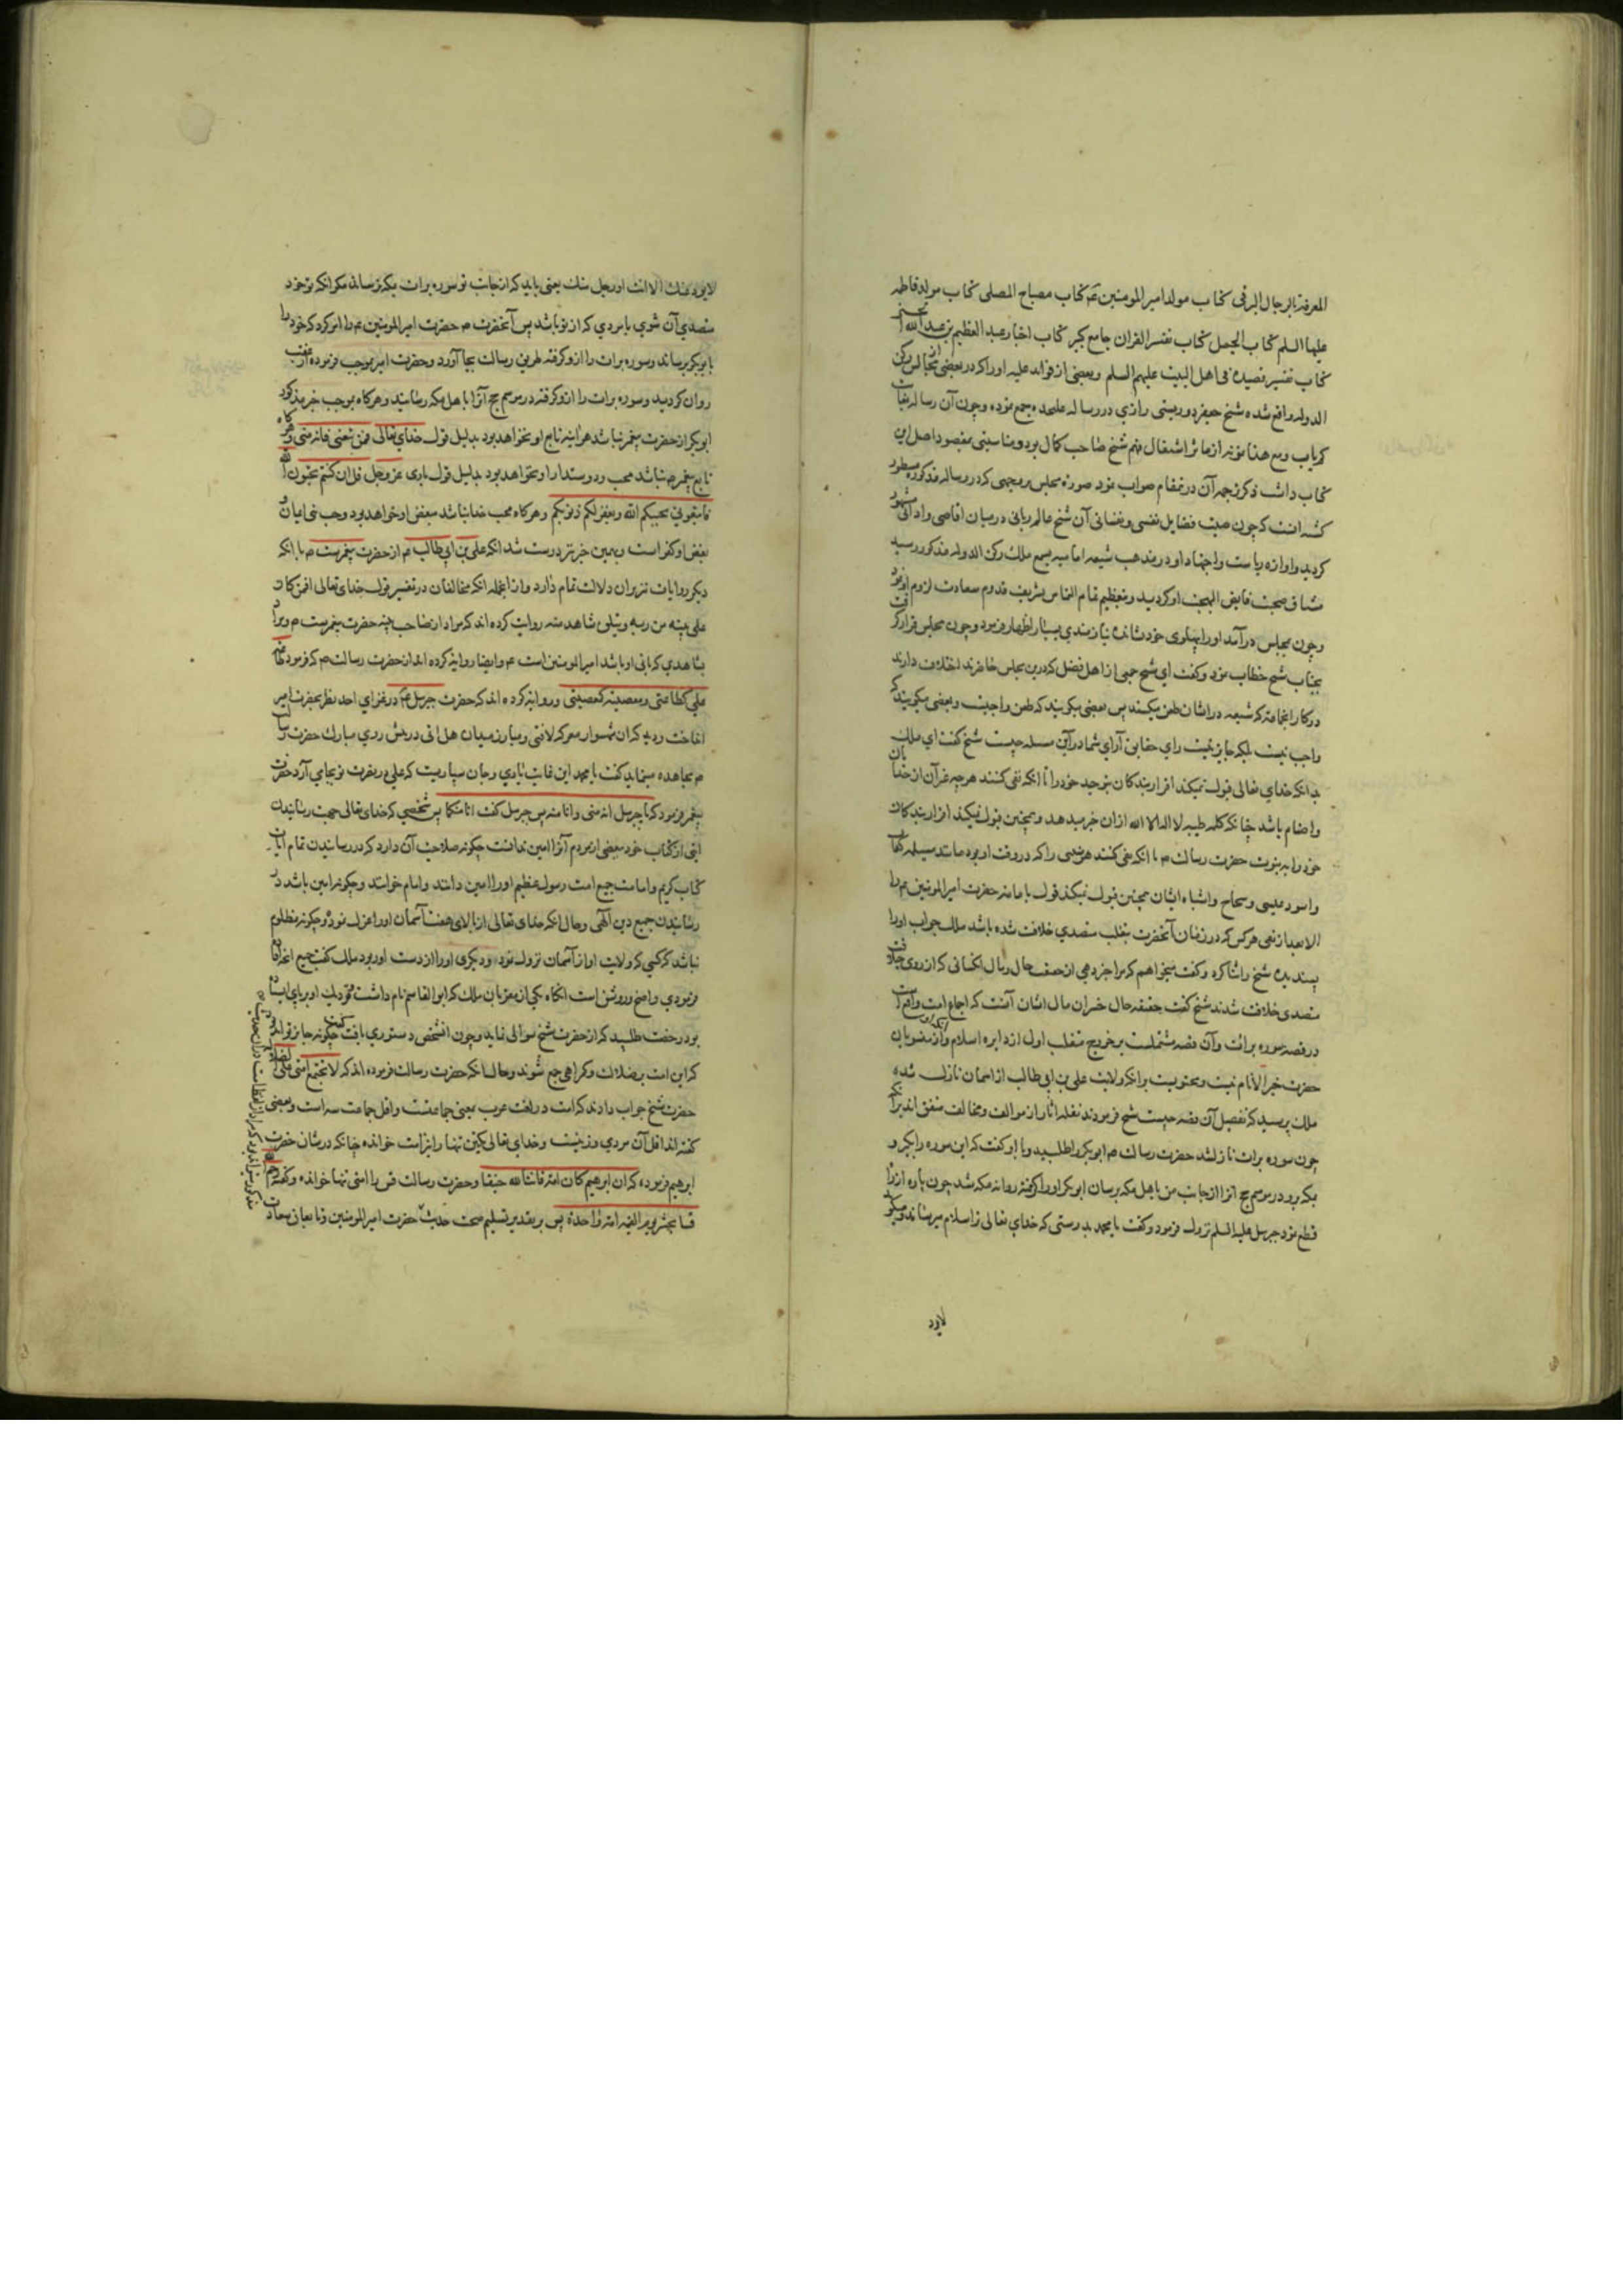 المعرفة بالرجال البرقی کتاب مولد امیر المومنین عم کتاب مصباح المصلی کتاب مولد فاطمه
علیها السلم کتاب الجمل کتاب تفسیر القران جامع کبیر کتاب اخبار عبد العظیم بن عبد الله الحسنی
کتاب تفسیر قصیده فی اهل البیت علیهم السلم وبعضی از فواید علیه او را که در بعضی از مجالس رکن
الدوله واقع شده شیخ جعفر دوریستی رازی در رساله علیحده جمع نموده وچون آن رساله بغایت
کمیاب ومع هذا نمونه از مآثر اشتغال بهم شیخ صاحب کمال بود ومناسبتی بمقصود اصل این
کتاب داشت ذکر ترجمه آن در مقام صواب نمود صورة مجلس بر وجهی که در رساله مذکوره مسطور
گشته انست که چون صیت فضایل نفسی ونفسانی آن شیخ عالم ربانی در میان اقاصی وادانی مشهور
کردید واوازه ریاست واجتهاد او در مذهب شیعه امامیه بسمع ملک رکن الدوله مذکور رسید
مشتاق صحبت فایض البهجت او کردید وبتعظیم تمام التماس تشریف قدوم سعادت لزوم او نمود
وچون بمجلس درآمد او را پهلوی خود نشانده نیازمندی بسیار اظهار فرمود وچون مجلس قرار کرفت
بجناب شیخ خطاب نمود وکفت ای شیخ جمعی از اهل فضل که درین مجلس حاضرند اختلاف دارند
در کار انجماعت که شیعه در ایشان طعن میکنند پس بعضی میکویند که طعن واجبست وبعضی میکویند که
واجب نیست بلکه جایز نیست رای حقایق آرای شما در این مسئله چیست شیخ کفت ای ملک
بدانکه خدای تعالی قبول نمیکند اقرار بندکان بتوحید خود را تا انکه نفی کنند هرچه غیر آن از خدایان
واصنام باشد چنانکه کلمه طیبه لا اله الا الله ازان خبر میدهد وهمچنین قبول نمیکند اقرار بندکان
خود را به نبوت حضرت رسالت م تا انکه نفی کنند هر متنبی را که در وقت او بود مانند مسیلمه کذاب
واسود عنسی وسجاح واشباه ایشان همچنین قبول نمیکند قول بامامة حضرت امیر المومنین عم را
الا بعد از نفی هر کس که در زمان آنحضرت بتغلب متصدی خلافت شده باشد ملک جواب او را
پسندیده شیخ را ثنا کرد وکفت میخواهم که مرا خبر دهی از حقیقت حال ومآل انکسانی که از روی خلافت
متصدی خلافت شدند شیخ کفت حقیقه حال خسران مال ایشان آنست که اجماع امت واقع است
در قصه سوره برائت وآن قصه مشتملست بر خروج متغلب اول از دایره اسلام
حضرت خیر الانام نیست ومحتویست برانکه ولایت علی بن ابی طالب از اسمان نازل شده
ملک پرسید که تفصیل آن قصه چیست شیخ فرمودند نقله اثار از موالف ومخالف متفق اند برانکه
چون سوره برات نازل شد حضرت رسالت م ابوبکر را طلبید وبا او کفت که این سوره را بکیر و
بمکه برو در موسم حج انرا از جانب من باهل مکه برسان ابوبکر او را کرفته روانه مکه شد چون پاره از راه
قطع نمود جبریل علیه السلم نزول فرمود وکفت یا محمد بدرستی که خدای تعالی ترا سلام میرساند ومیکوید
لایود
لایودی عنک الا انت او رجل منک یعنی باید که از جانب تو سوره برات بمکه نرساند مکر انکه تو خود
متصدی آن شوی یا مردی که از تو باشد پس آنحضرت م حضرت امیر المومنین عم را امر کرد که خود را
بابوبکر برساند وسوره برات را ازو کرفته طریق رسالت بجا آورد وحضرت امیر بموجب فرموده از عقب
روان کردید وسوره برات را ازو کرفته در موسم حج آنرا باهل مکه رسانید وهرکاه بموجب خبر مذکور
ابوبکر از حضرت پیغمبر نباشد هراینه تابع او نخواهد بود بدلیل قول خدای تعالی فمن تبعنی فانه منی وهرکاه
تابع پیغمبر م نباشد محب ودوستدار او نخواهد بود بدلیل قول باری عز وجل قل ان کنتم تحبون الله
فاتبعونی یحببکم الله ویغفر لکم ذنوبکم وهرکاه محب خدا نباشد مبغض او خواهد بود وحب نبی ایمان و
بغض او کفر است وبهمین خبر نیز درست شد انکه علی بن ابی طالب م از حضرت پیغمبرست م با انکه
دیکر روایات نیز بران دلالت تمام دارد وازانجمله انکه مخالفان در تفسیر قول خدای تعالی افمن کان
علی بینه من ربه ویتلوه شاهد منه روایت کرده اند که مراد از صاحب بینه حضرت پیغمبرست م ومراد
بشاهدی که تالی او باشد امیر المومنین است عم وایضا روایة کرده اند از حضرت رسالت م که فرمود طاعة
علی کطاعتی ومعصیته کمعصیتی وروایة کرده اند که حضرت جبریل عم در غزای احد نظر بحضرت امیر
انداخت ودید که ان شهسوار معرکه لافتی ومبارز میدان هل اتی در پیش روی مبارک حضرت رسالت
م مجاهده مینماید کفت یا محمد این غایت یاری وجان سپاریست که علی در نصرت تو بجای آرد حضرت
پیغمبر فرمود که یا جبریل انه منی وانا منه پس جبریل کفت انا منکما پس شخصی که خدای تعالی جهت رسانیدن
ایتی از کتاب خود ببعضی از مردم آنرا امین ندانست چکونه صلاحیت آن دارد که در رسانیدن تمام ایات
کتاب کریم وامامت جمیع امت رسول عظیم او را امین دانند وامام خوانند وچکونه امین باشد در
رسانیدن جمیع دین الهی وحال انکه خدای تعالی از بالای هفت آسمان او را عزل نمود وچکونه مظلوم
نباشد کسی که ولایت او از آسمان نزول نمود ودیکری او را از دست او ربود ملک کفت جمیع انچه
فرمودی واضح وروشن است انکاه یکی از مقربان ملک که ابوالقاسم نام داشت ونزدیک او بر پای ایستاده
بود رخصت طلبید که از حضرت شیخ سوالی نماید وچون انشخص دستوری یافت کفت چکونه جایز تواند بود
که این امت بر ضلالت وکمراهی جمع شوند وحال انکه حضرت رسالت فرموده اند که لا تجتمع امتی علی الضلاله
حضرت شیخ جواب دادند که امت در لغت عرب بمعنی جماعتست واقل جماعت سه است وبعضی
کفته اند اقل آن مردی وزنیست وخدای تعالی یکتن تنها را نیز امت خوانده چنانکه در شان حضرت
ابرهیم فرموده که ان ابرهیم کان امة قانتا لله حنیفا وحضرت رسالت قس را امتی تنها خوانده وکفته رحم الله
قسا یحشر یوم القیمه امة واحدة پس بر تقدیر تسلیم صحت حدیث حضرت امیر المومنین وتابعان سعادت